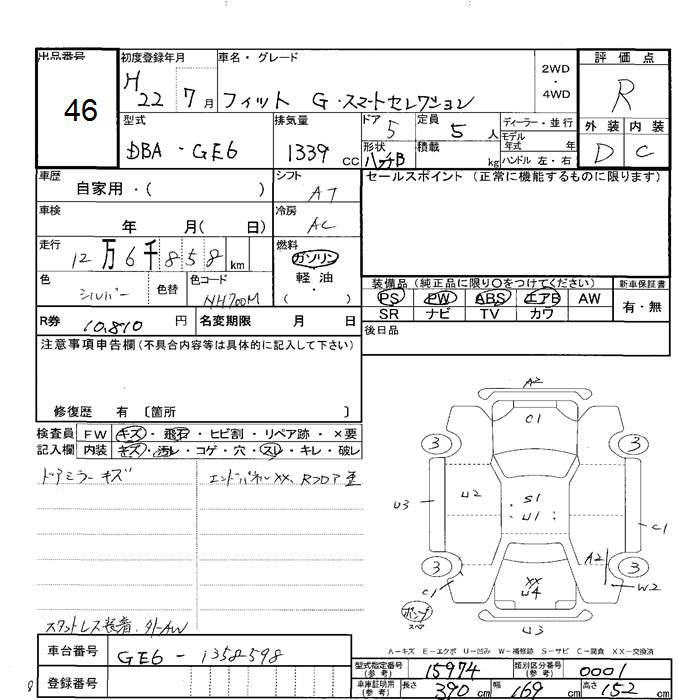 出品番号 初度登録年月 車名・グレード 2WD・4WD 評価点
46 H22 7月 フィット G・スマートセレクション R
型式 排気量 ドア 定員 ディーラー・並行 外装 内装
DBA - GE6 1339 cc 5 5 人 モデル年式 年 D C
形状 ハッチB 積載 kg ハンドル 左・右
車歴 自家用・( ) シフト AT セールスポイント (正常に機能するものに限ります)
車検 年 月( 日) 冷房 AC
走行 12万6千858 km 燃料 ガソリン 軽油 ( )
色 シルバー 色替 色コード NH700M
装備品 (純正品に限り○をつけてください) 新車保証書
PS PW ABS エアB AW 有・無
SR ナビ TV カワ
R券 10,810 円 名変期限 月 日 後日品
注意事項申告欄(不具合内容等は具体的に記入して下さい)
修復歴 有 〔箇所 〕
検査員 FW キズ・飛石・ヒビ割・リペア跡・×要
記入欄 内装 キズ・汚レ・コゲ・穴・スレ・キレ・破レ
ドアミラーキズ エンドパネルXX、Rフロア歪
A2
C1
3 3
U3 U2 S1 U1 C1
3 A2 3
C1 XX U4 W2
U3
スタットレス装着.
A-キズ E-エクボ U-凹み W-補修跡 S-サビ C-腐食 XX-交換済
車台番号 GE6 - 1358598
登録番号
型式指定番号(参考) 15974 類別区分番号(参考) 0001
車庫証明用(参考) 長さ 390 cm 幅 169 cm 高さ 152 cm